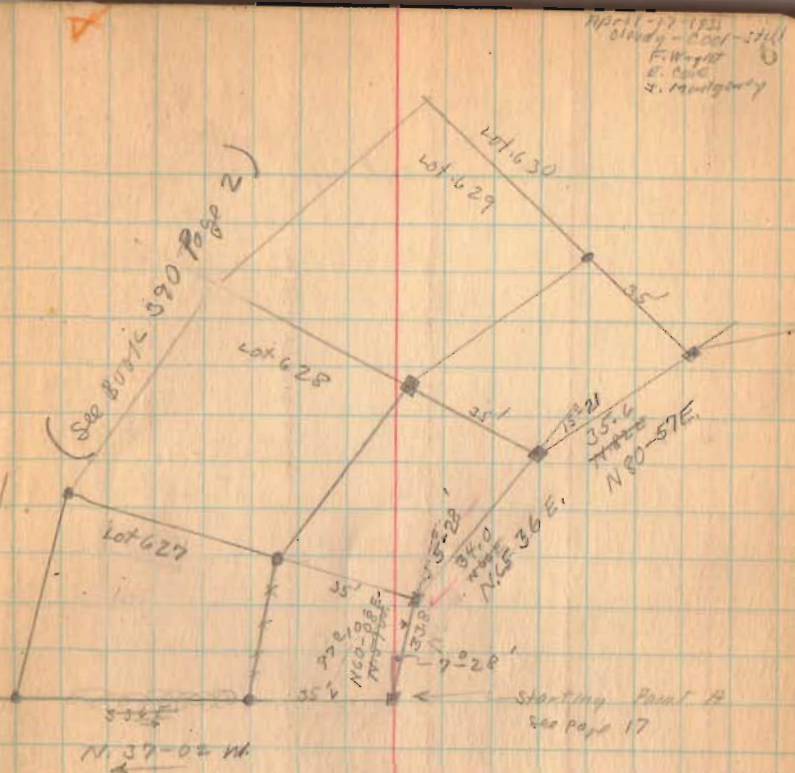 April-17-1931
Cloudy-Cool-Still
F. Wright
J. Montgomery
Lot 630
Lot 629
(See Book 390 Page 2)
35'
Lot 628
35'
15°21
35.6
N 80-57E.
5-28'
34.0
N.65 36 E.
Lot 627
35'
97°10
N60-08E.
33.8
7°28'
35'
Starting Point A
See page 17
N. 37-02 W.